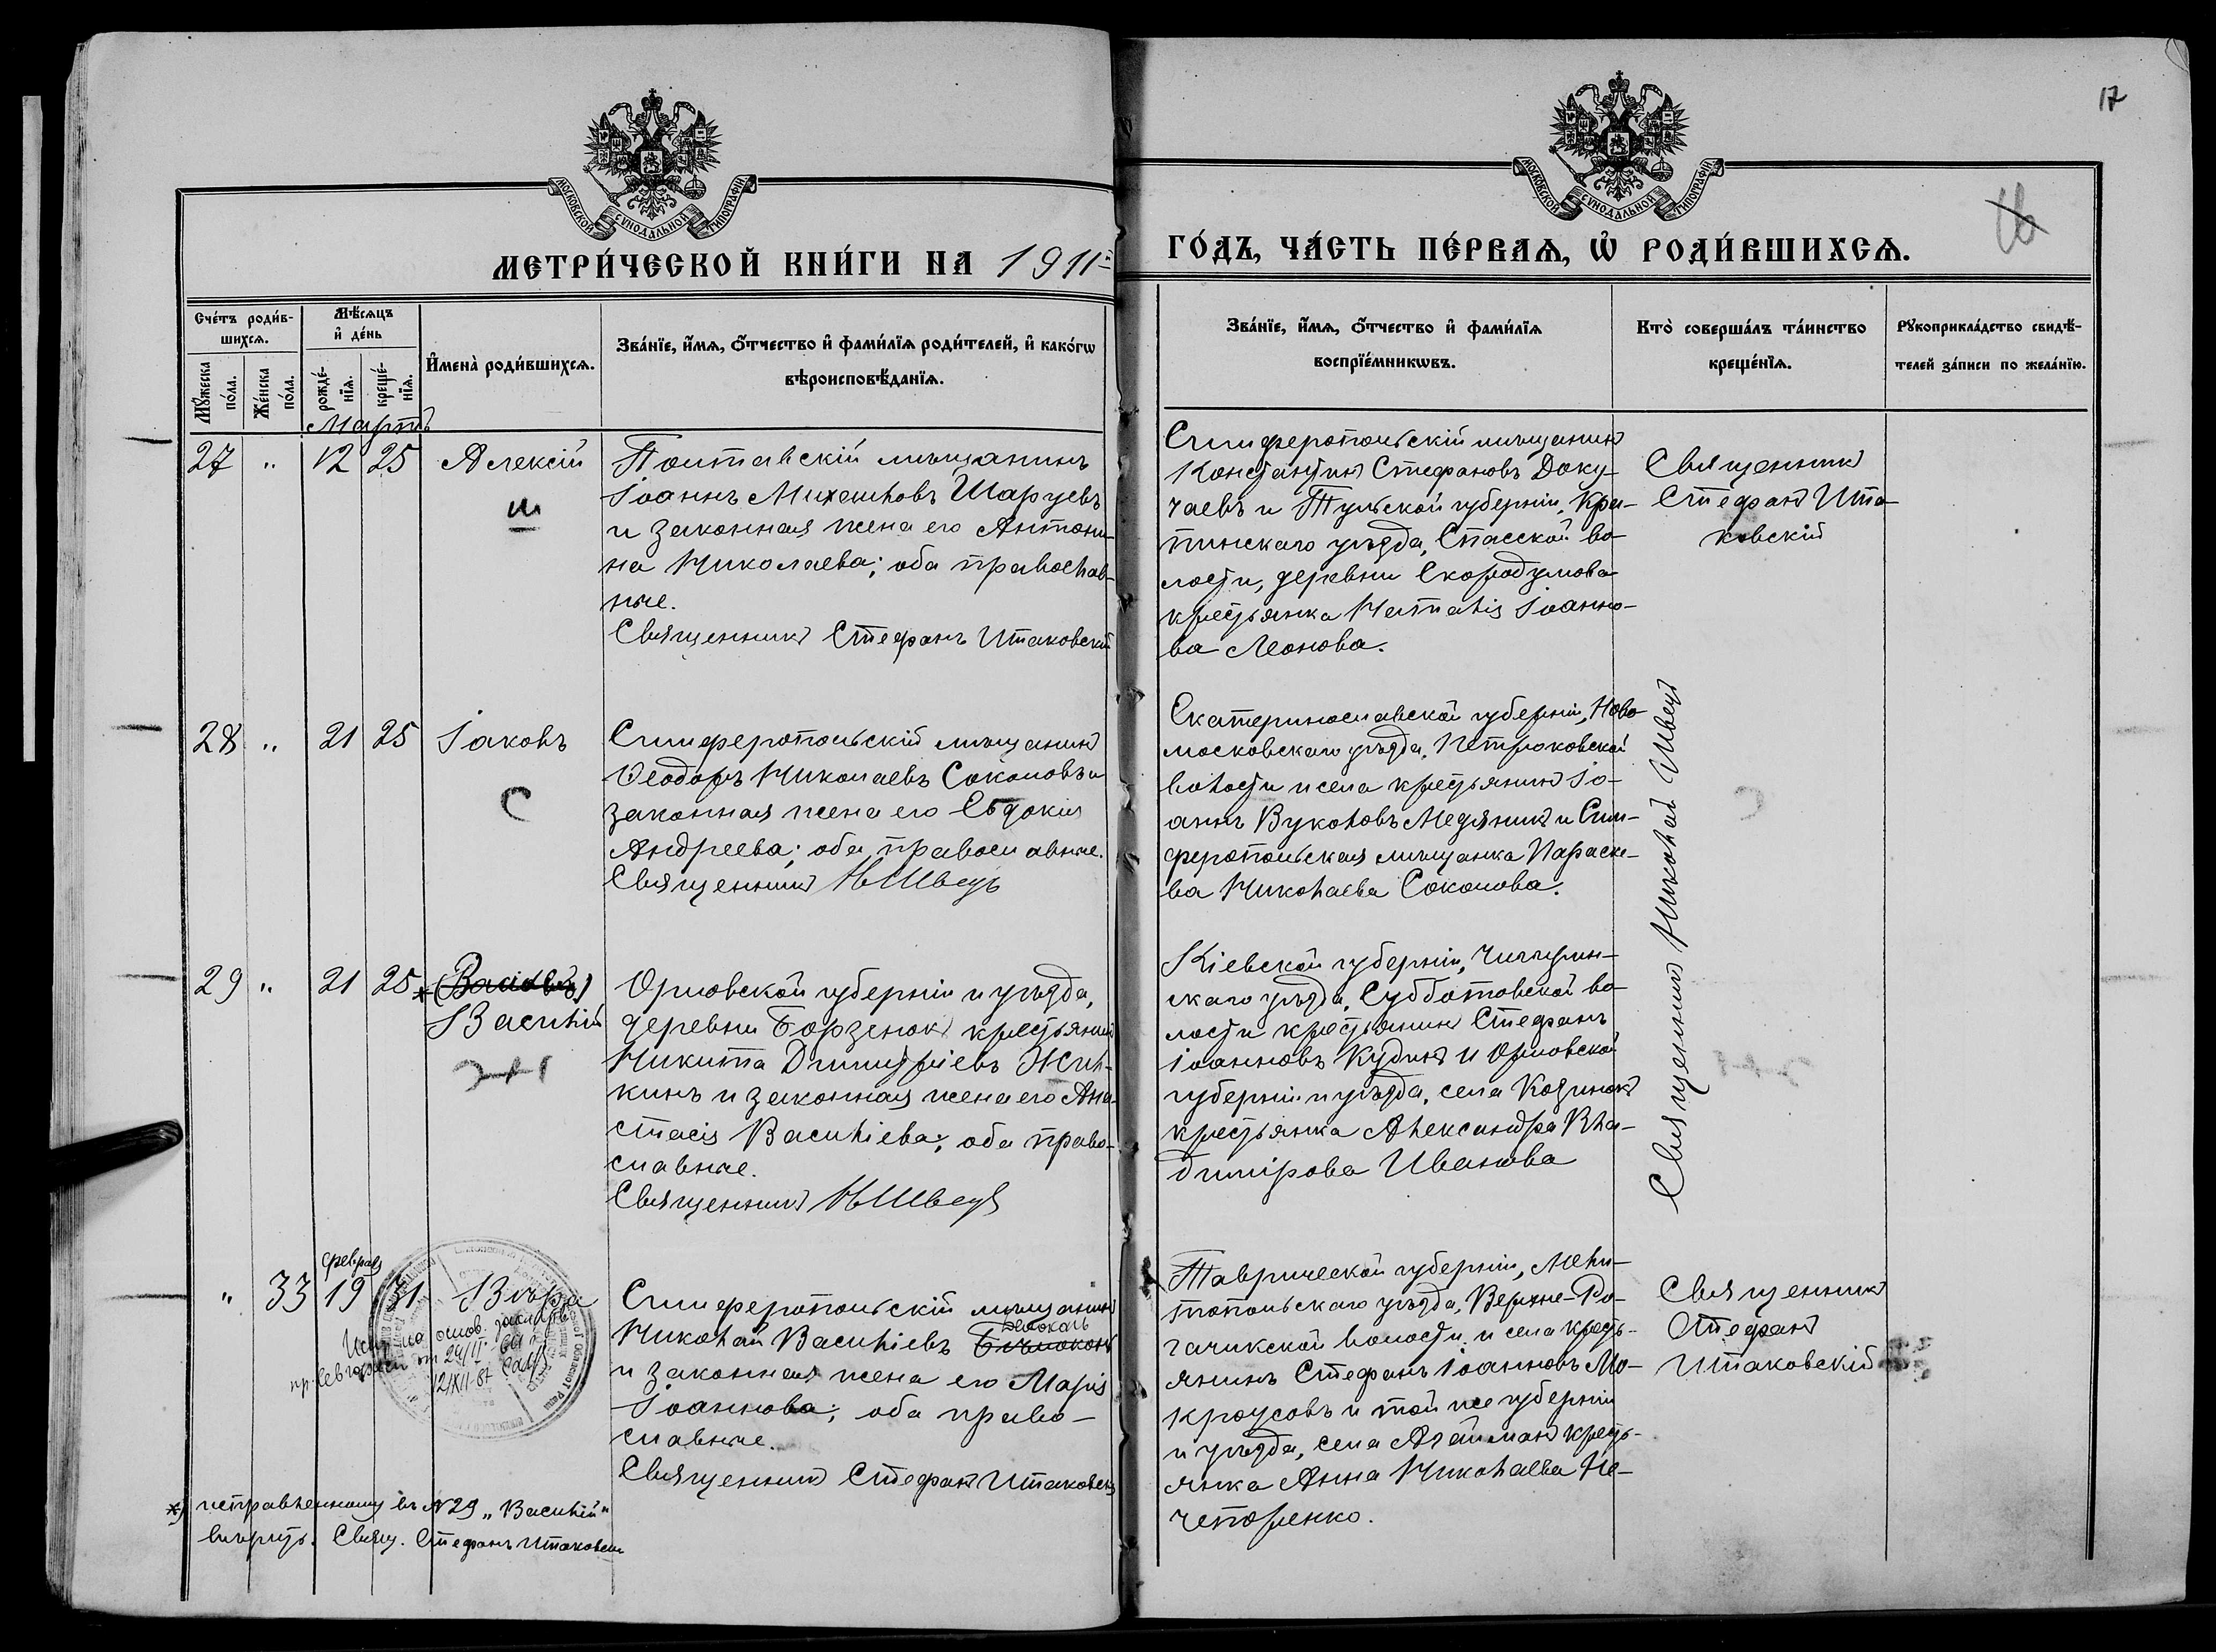 17
16
МОСКОВСКОЙ СѴНОДАЛЬНОЙ ТИПОГРАФІИ.
МОСКОВСКОЙ СѴНОДАЛЬНОЙ ТИПОГРАФІИ.
МЕТРИ́ЧЕСКОЙ КНИ́ГИ НА 1911й
ГО́ДЪ, ЧА́СТЬ ПЕ́РВАѦ, Ѡ҆ РОДИ́ВШИХСѦ.
Сче́тъ роди́в-
шихсѧ.
Мꙋ́жеска по́ла.
Же́нска по́ла.
Мѣ́сѧцъ
и҆ де́нь
рожде́-
нїѧ.
креще́-
нїѧ.
И҆мена̀ роди́вшихсѧ.
Зва́нїе, и҆́мѧ, ѻ҆́тчество и҆ фами́лїѧ роди́телей, и҆ како́гѡ
вѣроисповѣ́данїѧ.
Зва́нїе, и҆́мѧ, ѻ҆́тчество и҆ фами́лїѧ
воспрїе́мникѡвъ.
Кто̀ соверша́лъ та́инство
креще́нїѧ.
Рꙋкоприкла́дство свидѣ́-
телей за́писи по жела́нїю.
Мартъ
27 " 12 25 Алексій
ш
Полтавскій мѣщанинъ
Іоаннъ Михаиловъ Шаруевъ
и законная жена его Антони-
на Николаева; оба православ-
ные.
Священникъ Стефанъ Итаковскій
Симферопольскій мѣщанинъ
Константинъ Стефановъ Доку-
чаевъ и Тульской губерніи, Кра-
пинскаго уѣзда, Спасской во-
лости, деревни Скородумова
крестьянка Наталія Іоанно-
ва Леонова.
Священникъ
Стефанъ Ита-
ковскій
28 " 21 25 Іаковъ
С
Симферопольскій мѣщанинъ
Ѳеодоръ Николаевъ Соколовъ и
законная жена его Евдокія
Андреева; оба православные.
Священникъ Н Швецъ
Екатеринославской губерніи, Ново-
московскаго уѣзда, Петриковской
волости и села крестьянинъ Іо-
аннъ Вуколовъ Медяникъ и Сим-
феропольская мѣщанка Параске-
ва Николаева Соколова.
Священникъ Николай Швецъ
29 " 21 25 *
Василій
Орловской губерніи и уѣзда,
деревни Борзенокъ крестьянинъ
Никита Димитріевъ Жил-
кинъ и законная жена его Ана-
стасія Василіева; оба право-
славные.
Священникъ Н Швецъ
Кіевской губерніи, Чигирин-
скаго уѣзда, Субботовской во-
лости крестьянинъ Стефанъ
Іоанновъ Кудинъ и Орловской
губерніи и уѣзда, села Козинокъ
крестьянка Александра Вла-
димірова Иванова
февраля
" 33 19 31 Вѣра
Симферопольскій мѣщанинъ
Белоконь
Николай Василіевъ Бѣлоконь
и законная жена его Марія
Іоаннова; оба право-
славные.
Священникъ Стефанъ Итаковскій
Таврической губерніи, Мели-
топольскаго уѣзда, Верхне-Ро-
гачикской волости и села кресть-
янинъ Стефанъ Іоанновъ Мо-
кроусовъ и той же губерніи
и уѣзда, села Агайманъ кресть-
янка Анна Николаева Не-
чепоренко.
Священникъ
Стефанъ
Итаковскій
*) исправленному въ N 29 „Василій"
вѣрить. Свящ. Стефанъ Итаковскій